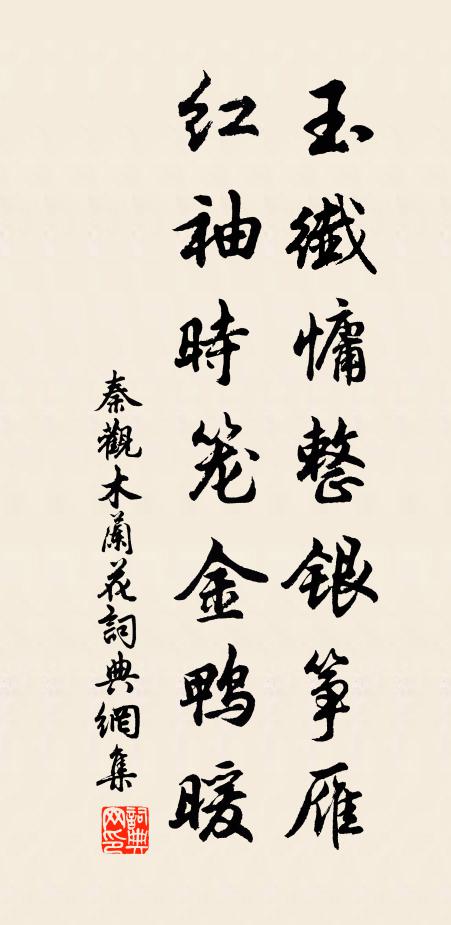 玉纖慵整銀筝雁
红袖時笼金鴨暖
秦觀木蘭花詞典網集
詞典网印